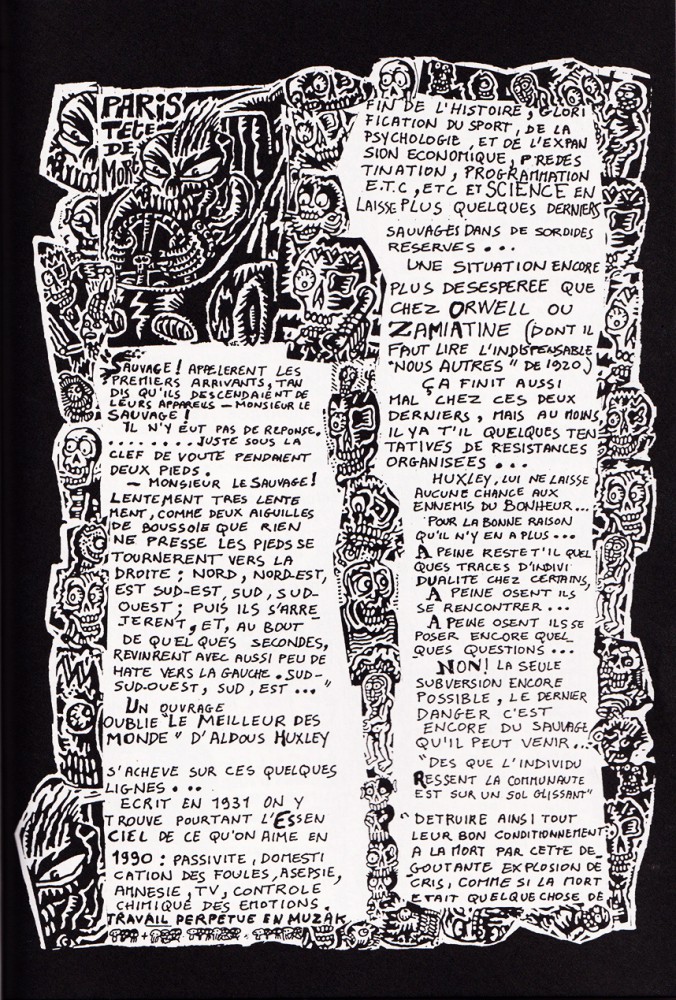 PARIS
TETE
DE
MORT
SAUVAGE! APPELERENT LES
PREMIERS ARRIVANTS, TAN
DIS QU'ILS DESCENDAIENT DE
LEURS APPAREILS – MONSIEUR LE
SAUVAGE!
IL N'Y EUT PAS DE REPONSE.
......... JUSTE SOUS LA
CLEF DE VOUTE PENDAIENT
DEUX PIEDS.
– MONSIEUR LE SAUVAGE!
LENTEMENT TRES LENTE
MENT, COMME DEUX AIGUILLES
DE BOUSSOLE QUE RIEN
NE PRESSE LES PIEDS SE
TOURNERENT VERS LA
DROITE; NORD, NORD-EST,
EST SUD-EST, SUD, SUD-
OUEST; PUIS ILS S'ARRE
TERENT, ET, AU BOUT
DE QUELQUES SECONDES,
REVINRENT AVEC AUSSI PEU DE
HATE VERS LA GAUCHE. SUD-
SUD-OUEST, SUD, EST ... "
UN OUVRAGE
OUBLIE "LE MEILLEUR DES
MONDE" D'ALDOUS HUXLEY
S'ACHEVE SUR CES QUELQUES
LIGNES ...
ECRIT EN 1931 ON Y
TROUVE POURTANT L'ESSEN
CIEL DE CE QU'ON AIME EN
1990 : PASSIVITE, DOMESTI
CATION DES FOULES, ASEPSIE,
AMNESIE, TV, CONTROLE
CHIMIQUE DES EMOTIONS.
TRAVAIL PERPETUE EN MUZAK
FIN DE L'HISTOIRE, GLORI
FICATION DU SPORT, DE LA
PSYCHOLOGIE, ET DE L'EXPAN
SION ECONOMIQUE, PREDES
TINATION, PROGRAMMATION
E.T.C, ETC ET SCIENCE EN
LAISSE PLUS QUELQUES DERNIERS
SAUVAGES DANS DE SORDIDES
RESERVES ...
UNE SITUATION ENCORE
PLUS DESESPEREE QUE
CHEZ ORWELL OU
ZAMIATINE (DONT IL
FAUT LIRE L'INDISPENSABLE
"NOUS AUTRES" DE 1920)
ÇA FINIT AUSSI
MAL CHEZ CES DEUX
DERNIERS, MAIS AU MOINS,
IL YA T'IL QUELQUES TEN
TATIVES DE RESISTANCES
ORGANISEES ...
HUXLEY, LUI NE LAISSE
AUCUNE CHANCE AUX
ENNEMIS DU BONHEUR...
POUR LA BONNE RAISON
QU'IL N'Y EN A PLUS ...
A PEINE RESTE T'IL QUEL
QUES TRACES D'INDIVI
DUALITE CHEZ CERTAINS,
A PEINE OSENT ILS
SE RENCONTRER ...
A PEINE OSENT ILS SE
POSER ENCORE QUEL
QUES QUESTIONS ...
NON! LA SEULE
SUBVERSION ENCORE
POSSIBLE, LE DERNIER
DANGER C'EST
ENCORE DU SAUVAGE
QU'IL PEUT VENIR...
"DES QUE L'INDIVIDU
RESSENT LA COMMUNAUTE
EST SUR UN SOL GLISSANT"
"DETRUIRE AINSI TOUT
LEUR BON CONDITIONNEMENT
A LA MORT PAR CETTE DE_
GOUTANTE EXPLOSION DE
CRIS, COMME SI LA MORT
ETAIT QUELQUE CHOSE DE